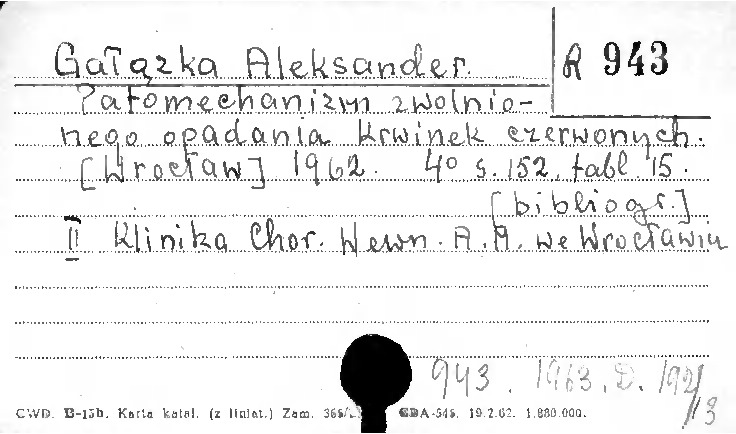 Gałązka Aleksander.
R 943
Patomechanizm zwolnio-
nego opadania krwinek czerwonych.
[Wrocław] 1962. 4° s. 152, tabl. 15.
[bibliogr.]
II Klinika Chor. Wewn. A. M. we Wrocławiu
943. 1963. D. 192/13
CWD. B-15b. Karta katal. (z liniat.) Zam. GDA-545. 19.2.62. 1.880.000.